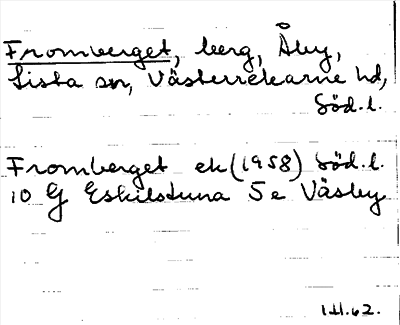 Fromberget, berg, Åby,
Lista sn, Västerrekarne hd,
Söd.l.
Fromberget ek (1958) Söd.l.
10 G Eskilstuna 5 e Väsby
I.H.62.